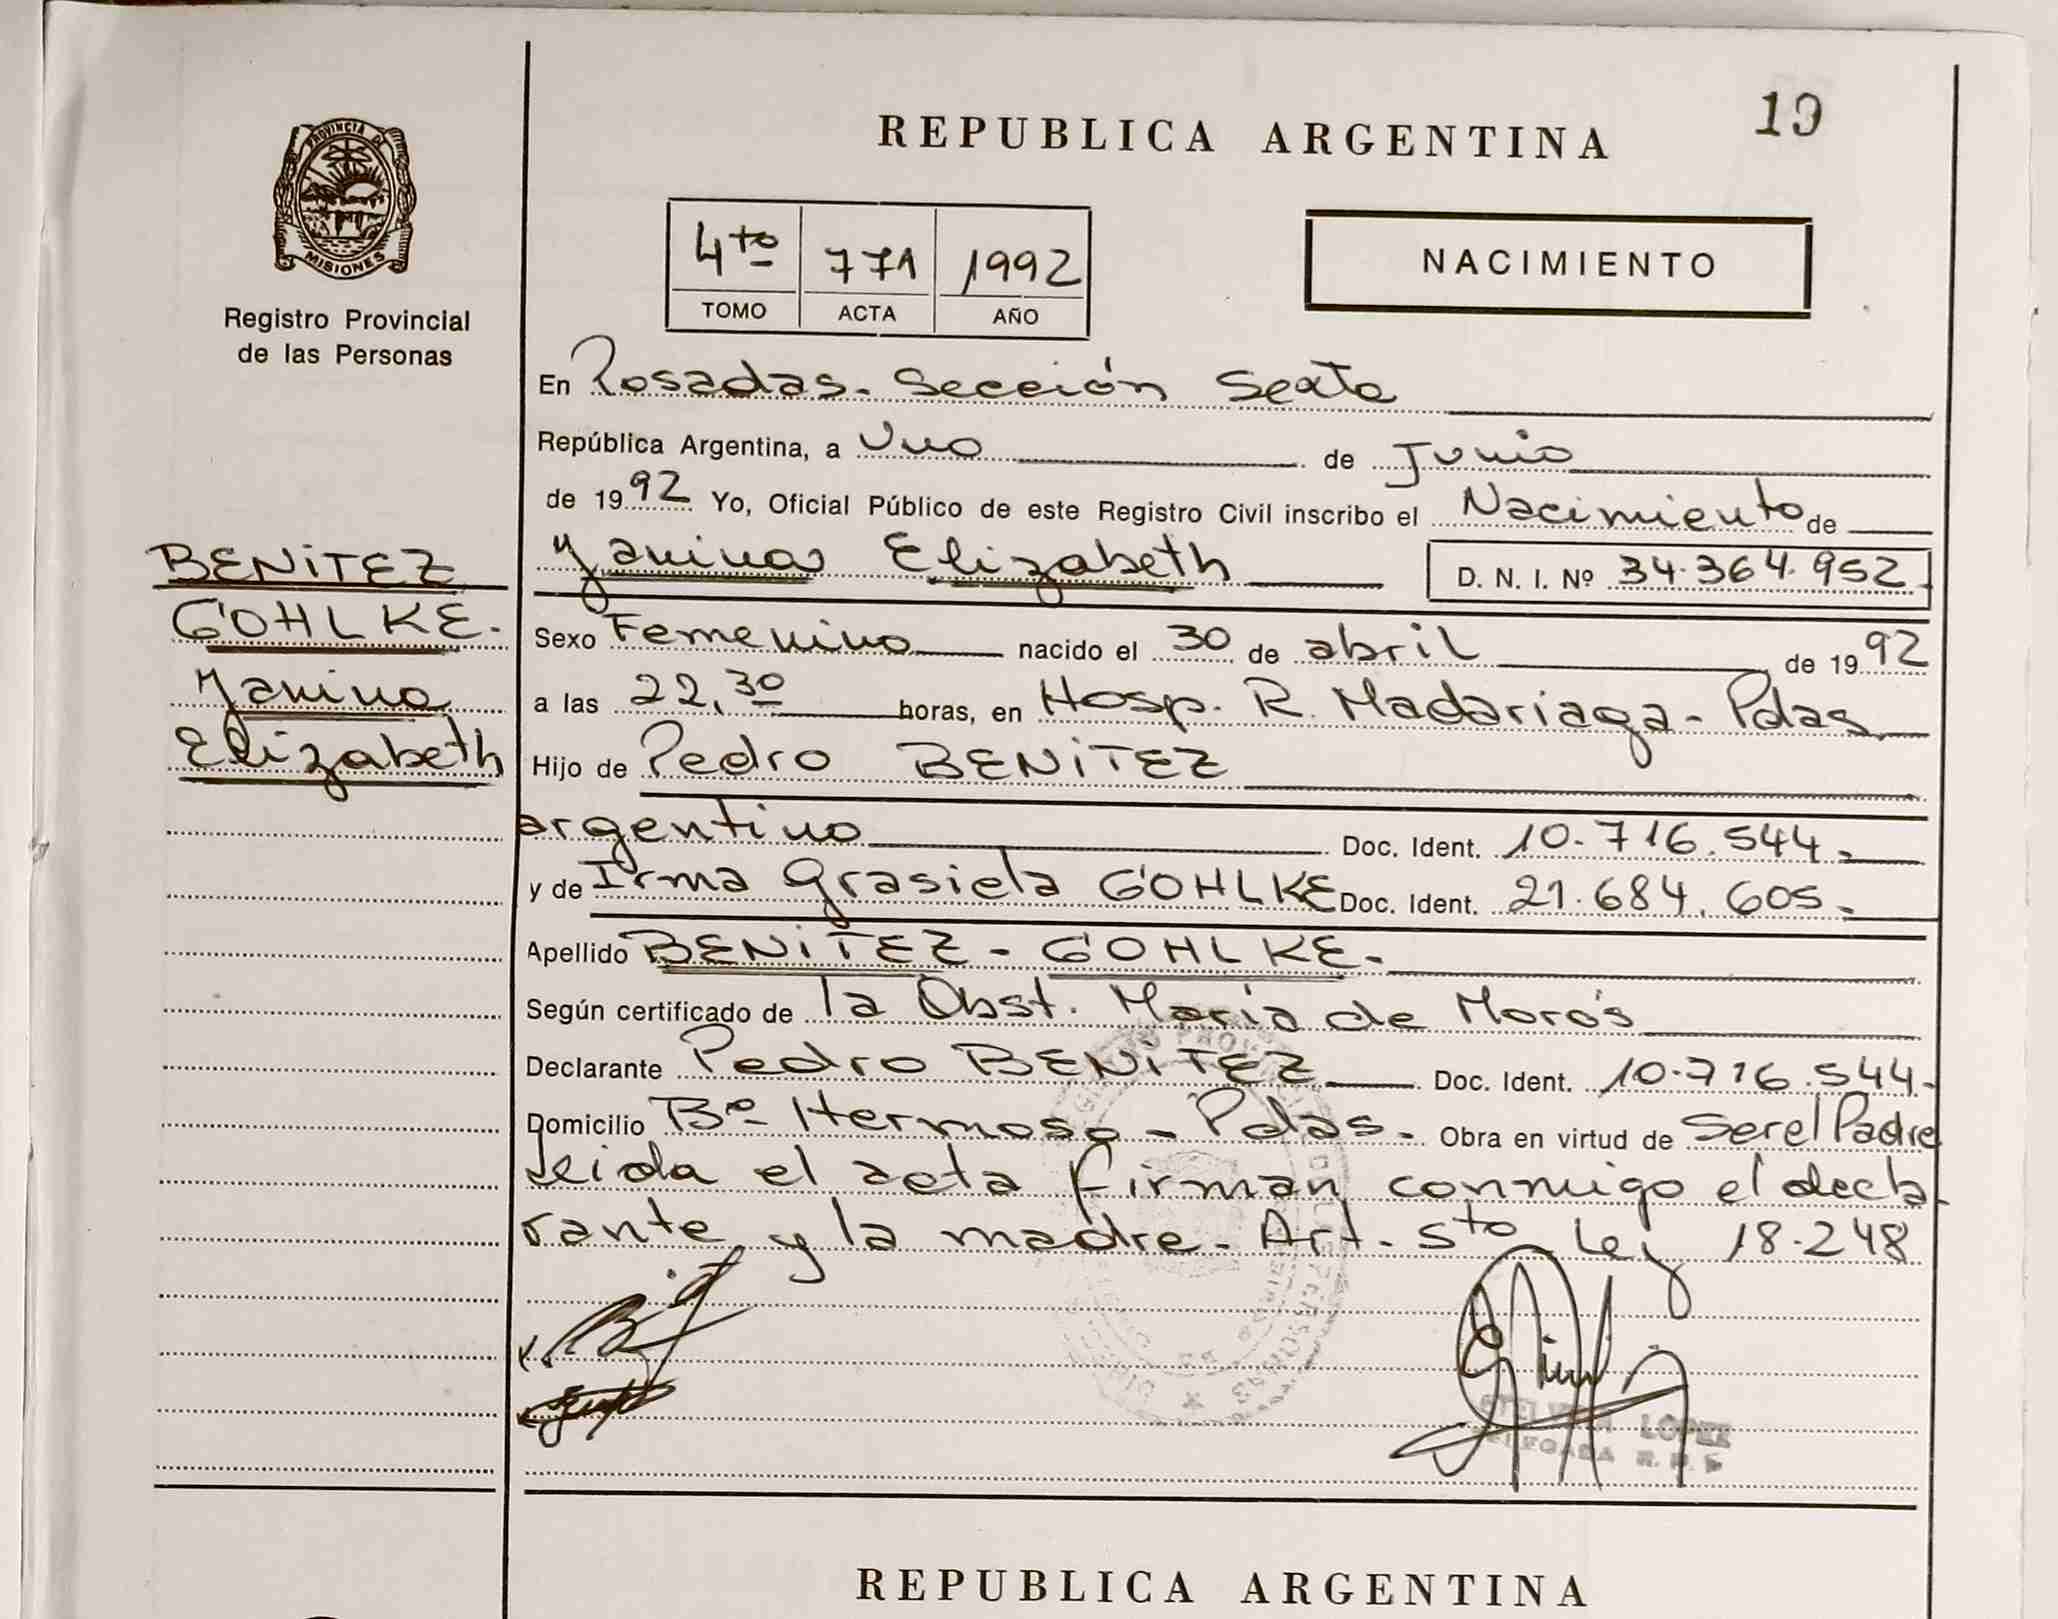 REPUBLICA ARGENTINA
19
PROVINCIA DE
MISIONES
Registro Provincial
de las Personas
4to 771 1992
TOMO ACTA AÑO
NACIMIENTO
En Posadas. Sección Sexta
República Argentina, a Uno de Junio
de 1992 Yo, Oficial Público de este Registro Civil inscribo el Nacimiento de
Yanina Elizabeth D. N. I. Nº 34.364.952
BENITEZ
GOHLKE.
Yanina
Elizabeth
Sexo Femenino nacido el 30 de abril de 1992
a las 22,30 horas, en Hosp. R. Madariaga - Pdas
Hijo de Pedro BENITEZ
argentino Doc. Ident. 10.716.544.
y de Irma Grasiela GOHLKE Doc. Ident. 21.684.605.
Apellido BENITEZ - GOHLKE.
Según certificado de la Obst. María de Morós
Declarante Pedro BENITEZ Doc. Ident. 10.716.544.
Domicilio Bº Hermoso - Pdas. Obra en virtud de Ser el Padre
Leida el acta firman conmigo el decla-
rante y la madre. Art. 5to Ley 18.248
LOPEZ
REPUBLICA ARGENTINA